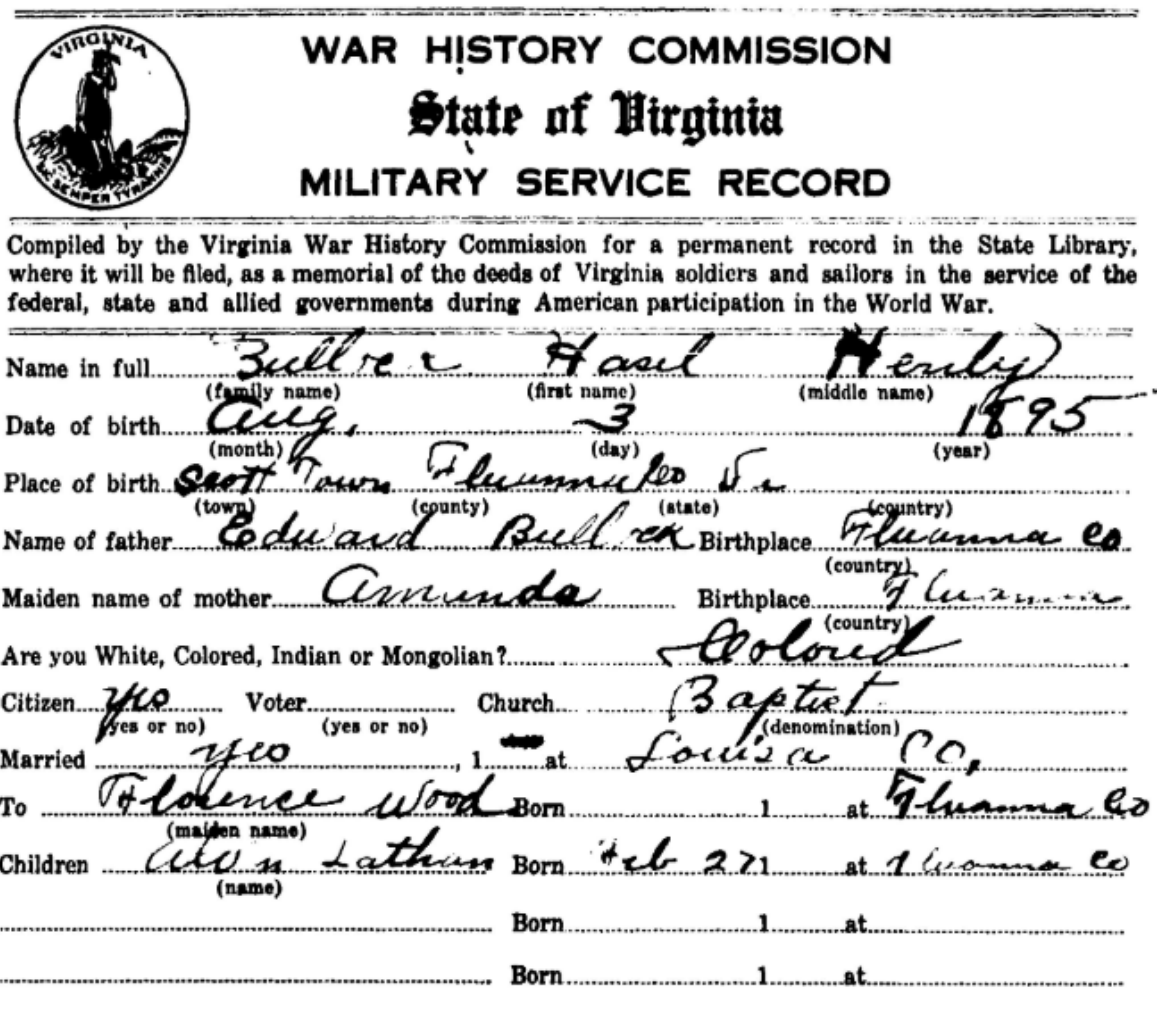 VIRGINIA
SIC SEMPER TYRANNIS
WAR HISTORY COMMISSION
State of Virginia
MILITARY SERVICE RECORD
Compiled by the Virginia War History Commission for a permanent record in the State Library,
where it will be filed, as a memorial of the deeds of Virginia soldiers and sailors in the service of the
federal, state and allied governments during American participation in the World War.
Name in full Hasel Henly
(family name) (first name) (middle name)
Date of birth Aug. 3 1895
(month) (day) (year)
Place of birth Scott Town Fluvanna Co Va
(town) (county) (state) (country)
Name of father Edward Bullock Birthplace Fluvanna Co
(country)
Maiden name of mother Amunda Birthplace Fluvanna
(country)
Are you White, Colored, Indian or Mongolian? Colored
Citizen Yes Voter Church Baptist
(yes or no) (yes or no) (denomination)
Married yes , 1 at Louisa Co,
To Florence Wood Born 1 at Fluvanna Co
(maiden name)
Children Born Feb 27 1 at Fluvanna Co
(name)
Born 1 at
Born 1 at